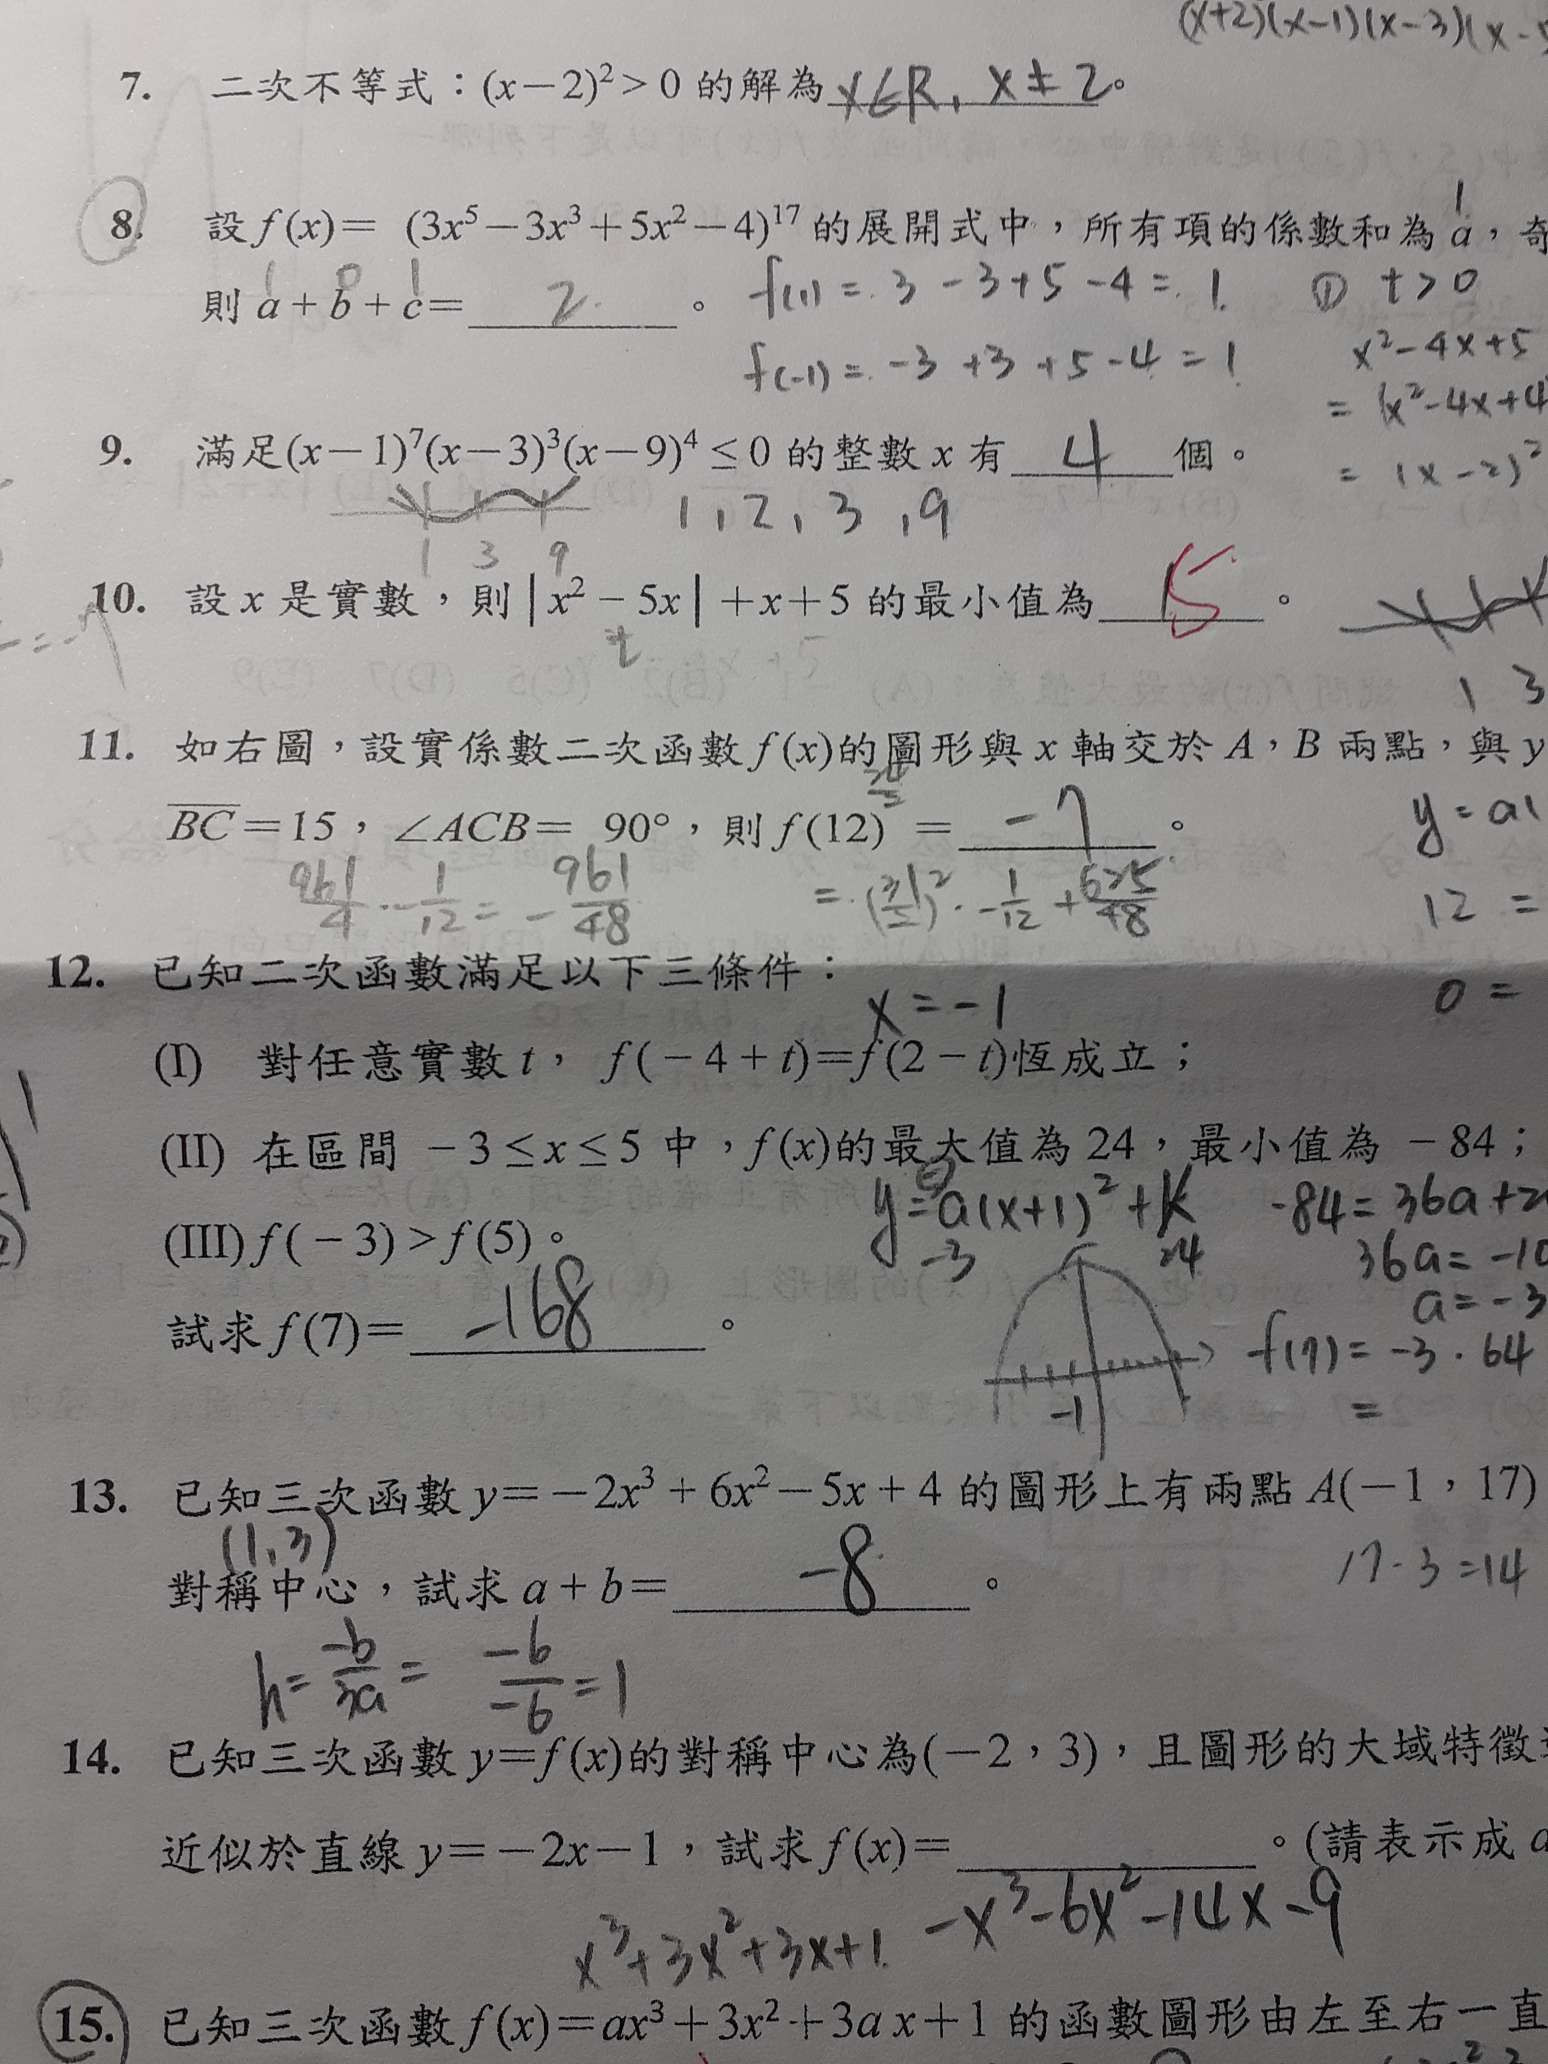 (x+2)(x-1)(x-3)(x-
7. 二次不等式：(x－2)²＞0 的解為 x∈R, x≠2。
8. 設 f(x)＝ (3x⁵－3x³＋5x²－4)¹⁷ 的展開式中，所有項的係數和為 a，奇
1
則 a＋b＋c＝ 2 。
1 0 1
f(1) = 3 - 3 + 5 - 4 = 1
① t > 0
f(-1) = -3 + 3 + 5 - 4 = 1
x² - 4x + 5
= (x² - 4x + 4
9. 滿足(x－1)⁷(x－3)³(x－9)⁴≤0 的整數 x 有 4 個。
= (x - 2)²
1, 2, 3, 9
1 3 9
10. 設 x 是實數，則 |x²－5x|＋x＋5 的最小值為 5 。
t
1 3
11. 如右圖，設實係數二次函數 f(x)的圖形與 x 軸交於 A，B 兩點，與 y
BC＝15，∠ACB＝ 90°，則 f(12) ＝ -7 。
y = a(
961/4 · -1/12 = -961/48
= (31/2)² · -1/12 + 625/48
12 =
12. 已知二次函數滿足以下三條件：
x = -1
0 =
(I) 對任意實數 t， f(－4＋t)＝f(2－t)恆成立；
(II) 在區間 －3≤x≤5 中，f(x)的最大值為 24，最小值為 －84；
y = a(x+1)² + k
-3
24
-84 = 36a + 2
(III) f(－3)＞f(5)。
36a = -10
a = -3
試求 f(7)＝ -168 。
f(7) = -3 · 64
-1
=
13. 已知三次函數 y＝－2x³＋6x²－5x＋4 的圖形上有兩點 A(－1，17)
(1,3)
對稱中心，試求 a＋b＝ -8 。
17-3=14
h = -b/3a = -6/-6 = 1
14. 已知三次函數 y＝f(x)的對稱中心為(－2，3)，且圖形的大域特徵
近似於直線 y＝－2x－1，試求 f(x)＝ 。(請表示成 a
-x³-6x²-14x-9
x³+3x²+3x+1
15. 已知三次函數 f(x)＝ax³＋3x²＋3a x＋1 的函數圖形由左至右一直